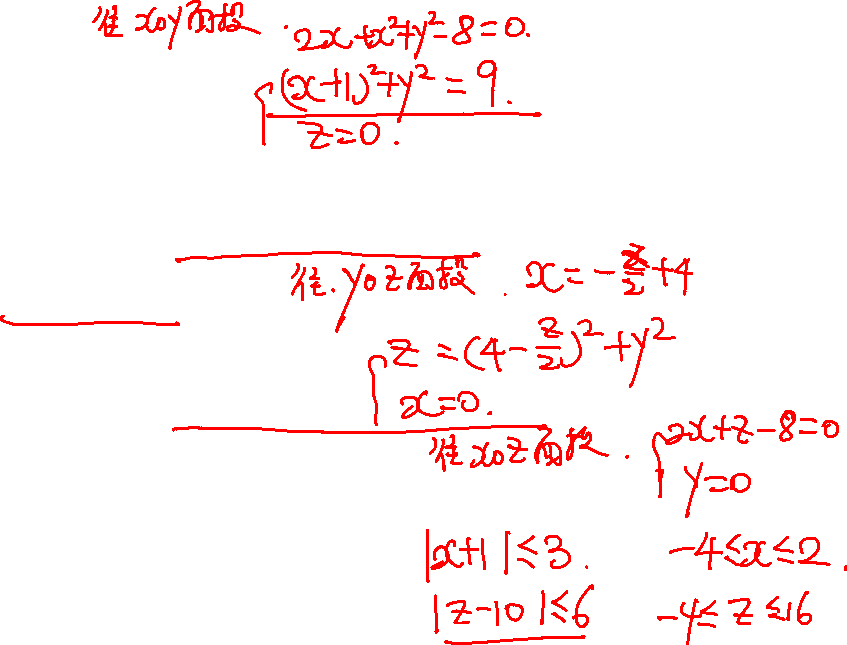 往xoy面投. 2x+x²+y²-8=0.
{(x+1)²+y²=9.
z=0.
往.yoz面投. x=-z/2+4
{z=(4-z/2)²+y²
x=0.
往xoz面投. {2x+z-8=0
y=0
|x+1|≤3. -4≤x≤2.
|z-10|≤6 -4≤z≤16